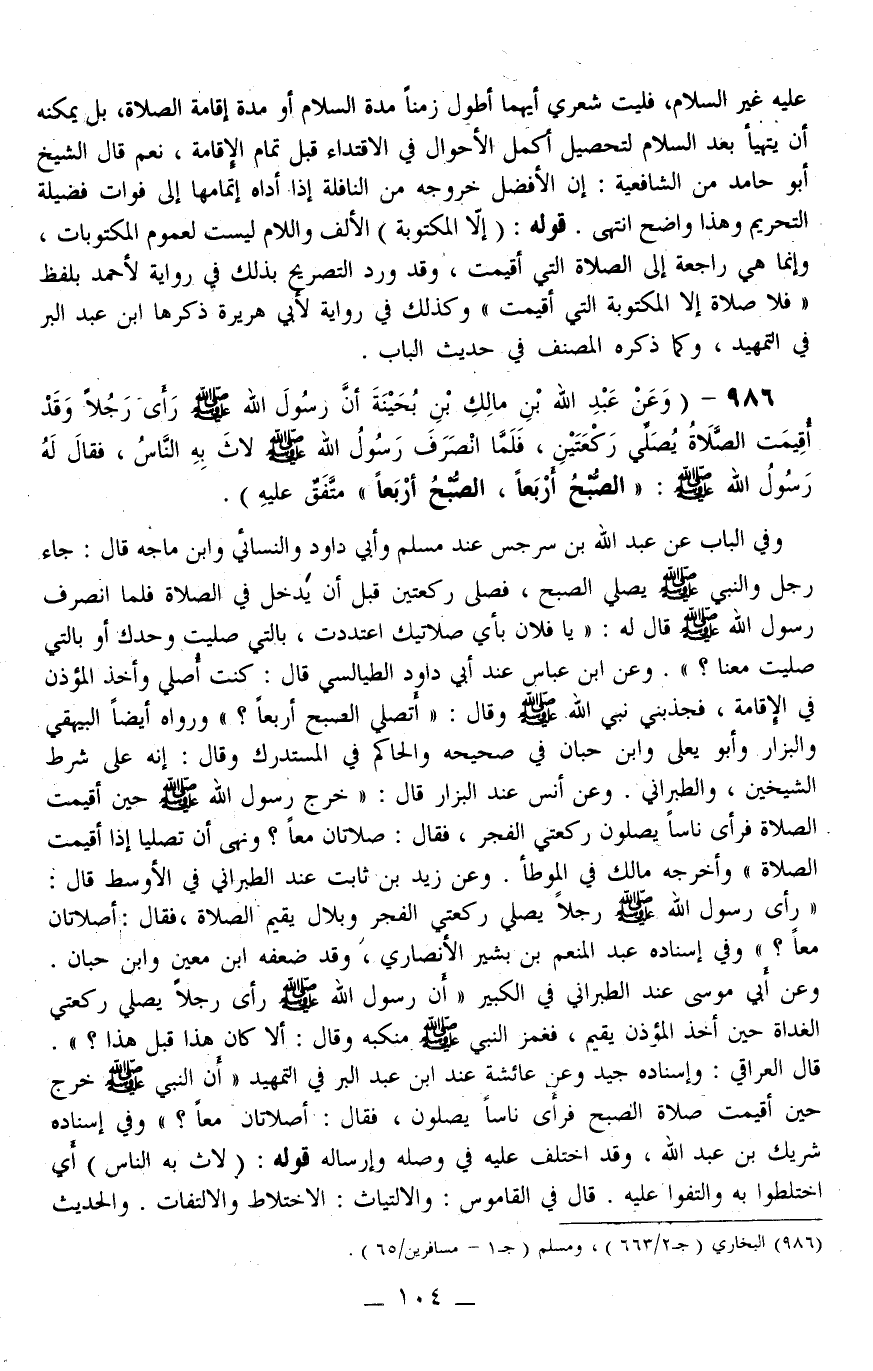 عليه غير السلام، فليت شعري أيهما أطول زمناً مدة السلام أو مدة إقامة الصلاة، بل يمكنه
أن يتهيأ بعد السلام لتحصيل أكمل الأحوال في الاقتداء قبل تمام الإقامة ، نعم قال الشيخ
أبو حامد من الشافعية : إن الأفضل خروجه من النافلة إذا أداه إتمامها إلى فوات فضيلة
التحريم وهذا واضح انتهى . قوله : ( إلّا المكتوبة ) الألف واللام ليست لعموم المكتوبات ،
وإنما هي راجعة إلى الصلاة التي أقيمت ، وقد ورد التصريح بذلك في رواية لأحمد بلفظ
« فلا صلاة إلا المكتوبة التي أقيمت » وكذلك في رواية لأبي هريرة ذكرها ابن عبد البر
في التمهيد ، وكما ذكره المصنف في حديث الباب .
٩٨٦ - ( وَعَنْ عَبْدِ الله بْنِ مالِكِ بْنِ بُحَيْنَةَ أنَّ رسُولَ الله ﷺ رَأَى رَجُلاً وَقَدْ
أُقِيمَت الصَّلَاةُ يُصَلِّي رَكْعَتَيْنِ ، فَلَمَّا انْصَرَفَ رَسُولُ الله ﷺ لاثَ بِهِ النَّاسُ ، فقالَ لَهُ
رَسُولُ الله ﷺ : « الصُّبْحُ أَرْبَعاً ، الصُّبْحُ أرْبَعاً » متَّفَقٌ عليهِ ) .
وفي الباب عن عبد الله بن سرجس عند مسلم وأبي داود والنسائي وابن ماجه قال : جاء
رجل والنبي ﷺ يصلي الصبح ، فصلى ركعتين قبل أن يُدخل في الصلاة فلما انصرف
رسول الله ﷺ قال له : « يا فلان بأي صلاتيك اعتددت ، بالتي صليت وحدك أو بالتي
صليت معنا ؟ » . وعن ابن عباس عند أبي داود الطيالسي قال : كنت أُصلي وأخذ المؤذن
في الإقامة ، فجذبني نبي الله ﷺ وقال : « أَتصلي الصبح أربعاً ؟ » ورواه أيضاً البيهقي
والبزار وأبو يعلى وابن حبان في صحيحه والحاكم في المستدرك وقال : إنه على شرط
الشيخين ، والطبراني . وعن أنس عند البزار قال : « خرج رسول الله ﷺ حين أقيمت
الصلاة فرأى ناساً يصلون ركعتي الفجر ، فقال : صلاتان معاً ؟ ونهى أن تصليا إذا أقيمت
الصلاة » وأخرجه مالك في الموطأ . وعن زيد بن ثابت عند الطبراني في الأوسط قال :
« رأى رسول الله ﷺ رجلاً يصلي ركعتي الفجر وبلال يقيم الصلاة ،فقال : أصلاتان
معاً ؟ » وفي إسناده عبد المنعم بن بشير الأنصاري ، وقد ضعفه ابن معين وابن حبان .
وعن أبي موسى عند الطبراني في الكبير « أن رسول الله ﷺ رأى رجلاً يصلي ركعتي
الغداة حين أخذ المؤذن يقيم ، فغمز النبي ﷺ منكبه وقال : ألا كان هذا قبل هذا ؟ » .
قال العراقي : وإسناده جيد وعن عائشة عند ابن عبد البر في التمهيد « أن النبي ﷺ خرج
حين أقيمت صلاة الصبح فرأى ناساً يصلون ، فقال : أصلاتان معاً ؟ » وفي إسناده
شريك بن عبد الله ، وقد اختلف عليه في وصله وإرساله قوله : ( لاث به الناس ) أي
اختلطوا به والتفوا عليه . قال في القاموس : والالتياث : الاختلاط والالتفات . والحديث
(٩٨٦) البخاري ( جـ٦٦٣/٢ ) ، ومسلم ( جـ١ - مسافرين/٦٥ ) .
_ ١٠٤ _